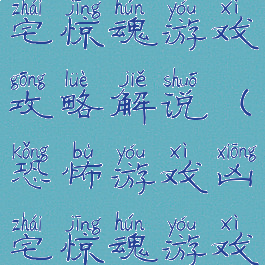 zhái jīng hún yóu xì
宅惊魂游戏
gōng lüè jiě shuō
攻略解说（
kǒng bù yóu xì xiōng
恐怖游戏凶
zhái jīng hún yóu xì
宅惊魂游戏